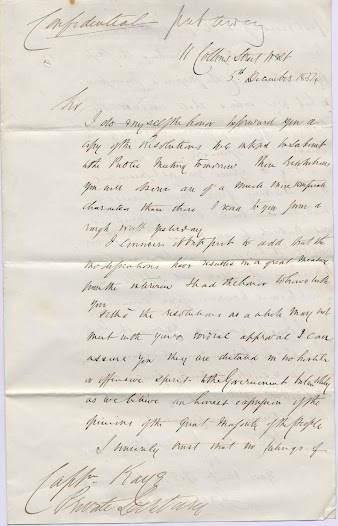 Confidential put away
11 Collins Street West
5th December 1854
Sir
I do myself the honor to forward you a
copy of the Resolutions we intend to submit
to the Public Meeting tomorrow These Resolutions
you will observe are of a much more temperate
character than those I read to you from a
rough draft yesterday
I consider it but just to add that the
modifications have resulted in a great measure
from the interview I had the honor to have with
you
Altho' the resolutions as a whole may not
meet with your cordial approval I can
assure you they are dictated in no hostile
or offensive spirit to the Government but solely
as we believe an honest expression of the
opinions of the Great Majority of the People
I sincerely trust that no feelings of
Captn Kaye
Private Secretary